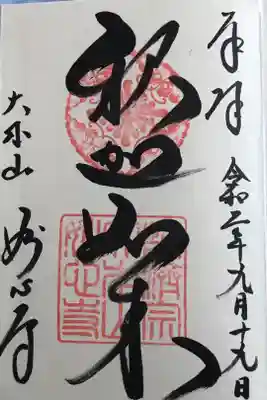 奉拝
令和二年九月十九日
釈迦如来
大本山
妙心寺